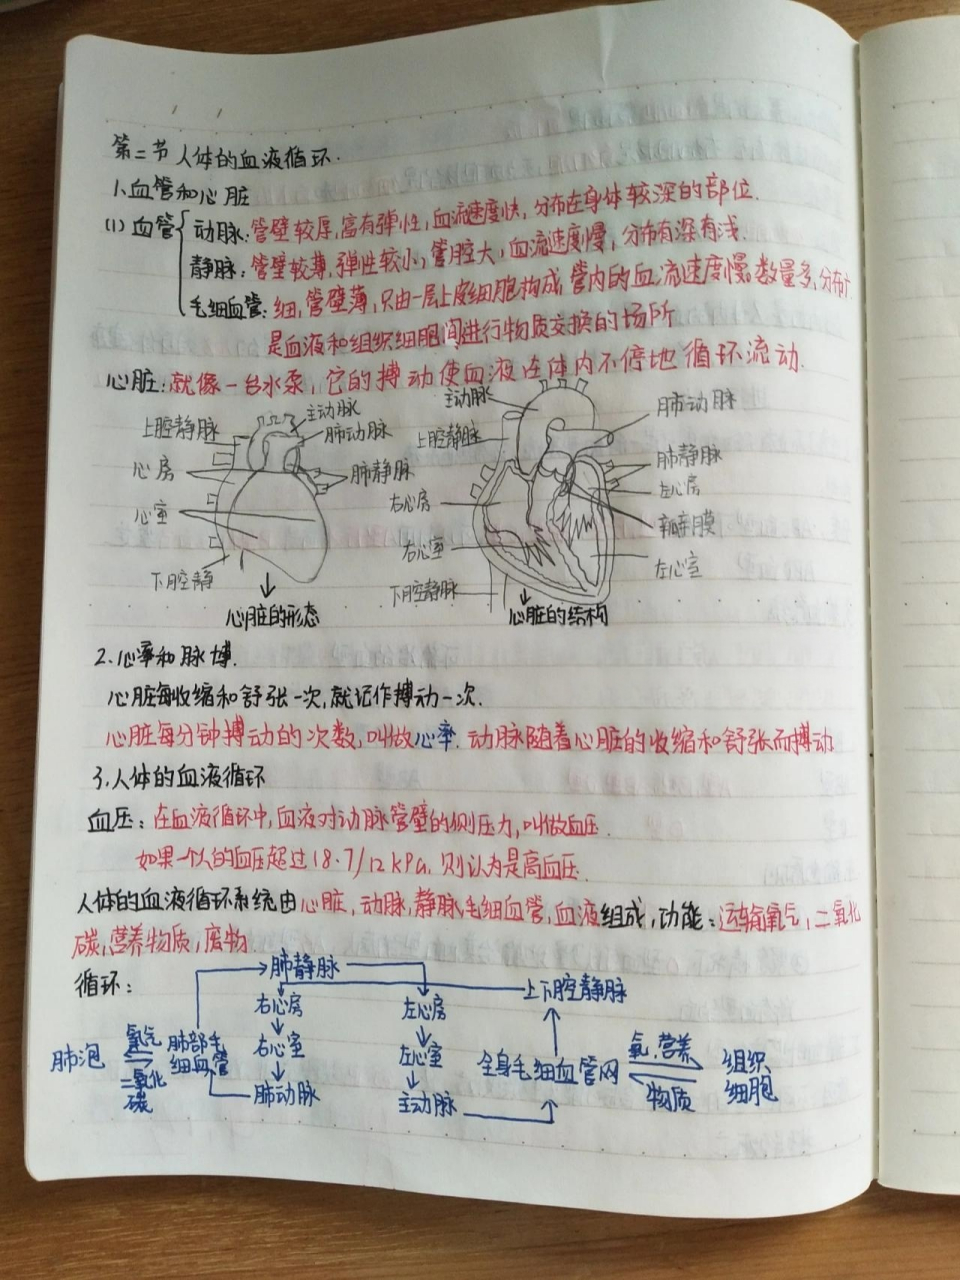 第二节 人体的血液循环.
1.血管和心脏
(1)血管 动脉:管壁较厚,富有弹性,血流速度快,分布在身体较深的部位.
静脉:管壁较薄,弹性较小,管腔大,血流速度慢,分布有深有浅.
毛细血管:细,管壁薄,只由一层上皮细胞构成,管内的血流速度慢,数量多,分布广
是血液和组织细胞间进行物质交换的场所
心脏:就像一台水泵,它的搏动使血液在体内不停地循环流动.
主动脉
上腔静脉
肺动脉
心房
肺静脉
心室
下腔静
心脏的形态
主动脉
肺动脉
上腔静脉
肺静脉
右心房
左心房
瓣膜
右心室
左心室
下腔静脉
心脏的结构
2.心率和脉博.
心脏每收缩和舒张一次,就记作搏动一次.
心脏每分钟搏动的次数,叫做心率.动脉随着心脏的收缩和舒张而搏动
3.人体的血液循环
血压:在血液循环中,血液对动脉管壁的侧压力,叫做血压.
如果一个人的血压超过18.7/12kPa,则认为是高血压.
人体的血液循环系统由心脏,动脉,静脉,毛细血管,血液组成,功能:运输氧气,二氧化
碳,营养物质,废物.
循环:
肺静脉
上下腔静脉
右心房
左心房
肺泡
氧气
二氧化
碳
肺部毛
细血管
右心室
左心室
全身毛细血管网
氧,营养
物质
组织
细胞
肺动脉
主动脉